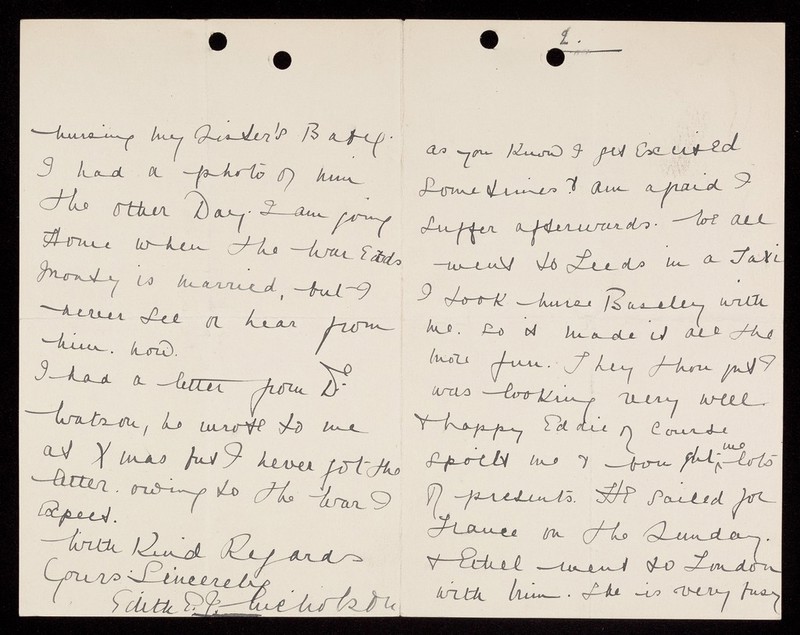 2.
as you know I get Excited
Sometimes & am afraid I
Suffer afterwards. We all
went to Leeds in a Taxi
I took nurse Baseley with
me. so it made it all the
more fun. They thought I
was looking very well
& happy Eddie of Course
Spoilt me & bought me lots
of presents. He Sailed for
France on the Sunday.
& Ethel went to London
with him. She is very busy
nursing my Sister's Baby.
I had a photo of him
the other Day. I am going
Home when the War Ends
Monty is married, but I
never See or hear from
him. now.
I had a letter from Dr.
Watson, he wrote to me
at Xmas but I never got the
letter. owing to the War I
Expect.
With Kind Regards
Yours Sincerely
Edith E. J. Nicholson